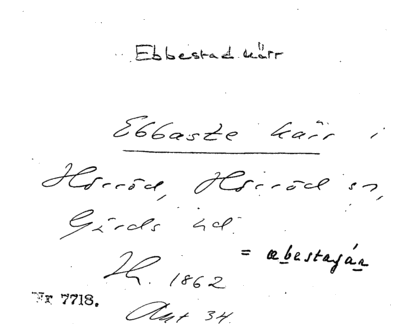 Ebbestad kärr
Ebbasze kärr i
Hörröd, Hörröd sn,
Gärds hd.
= æbestaján
Th. 1862
Nr 7718.
Akt 34